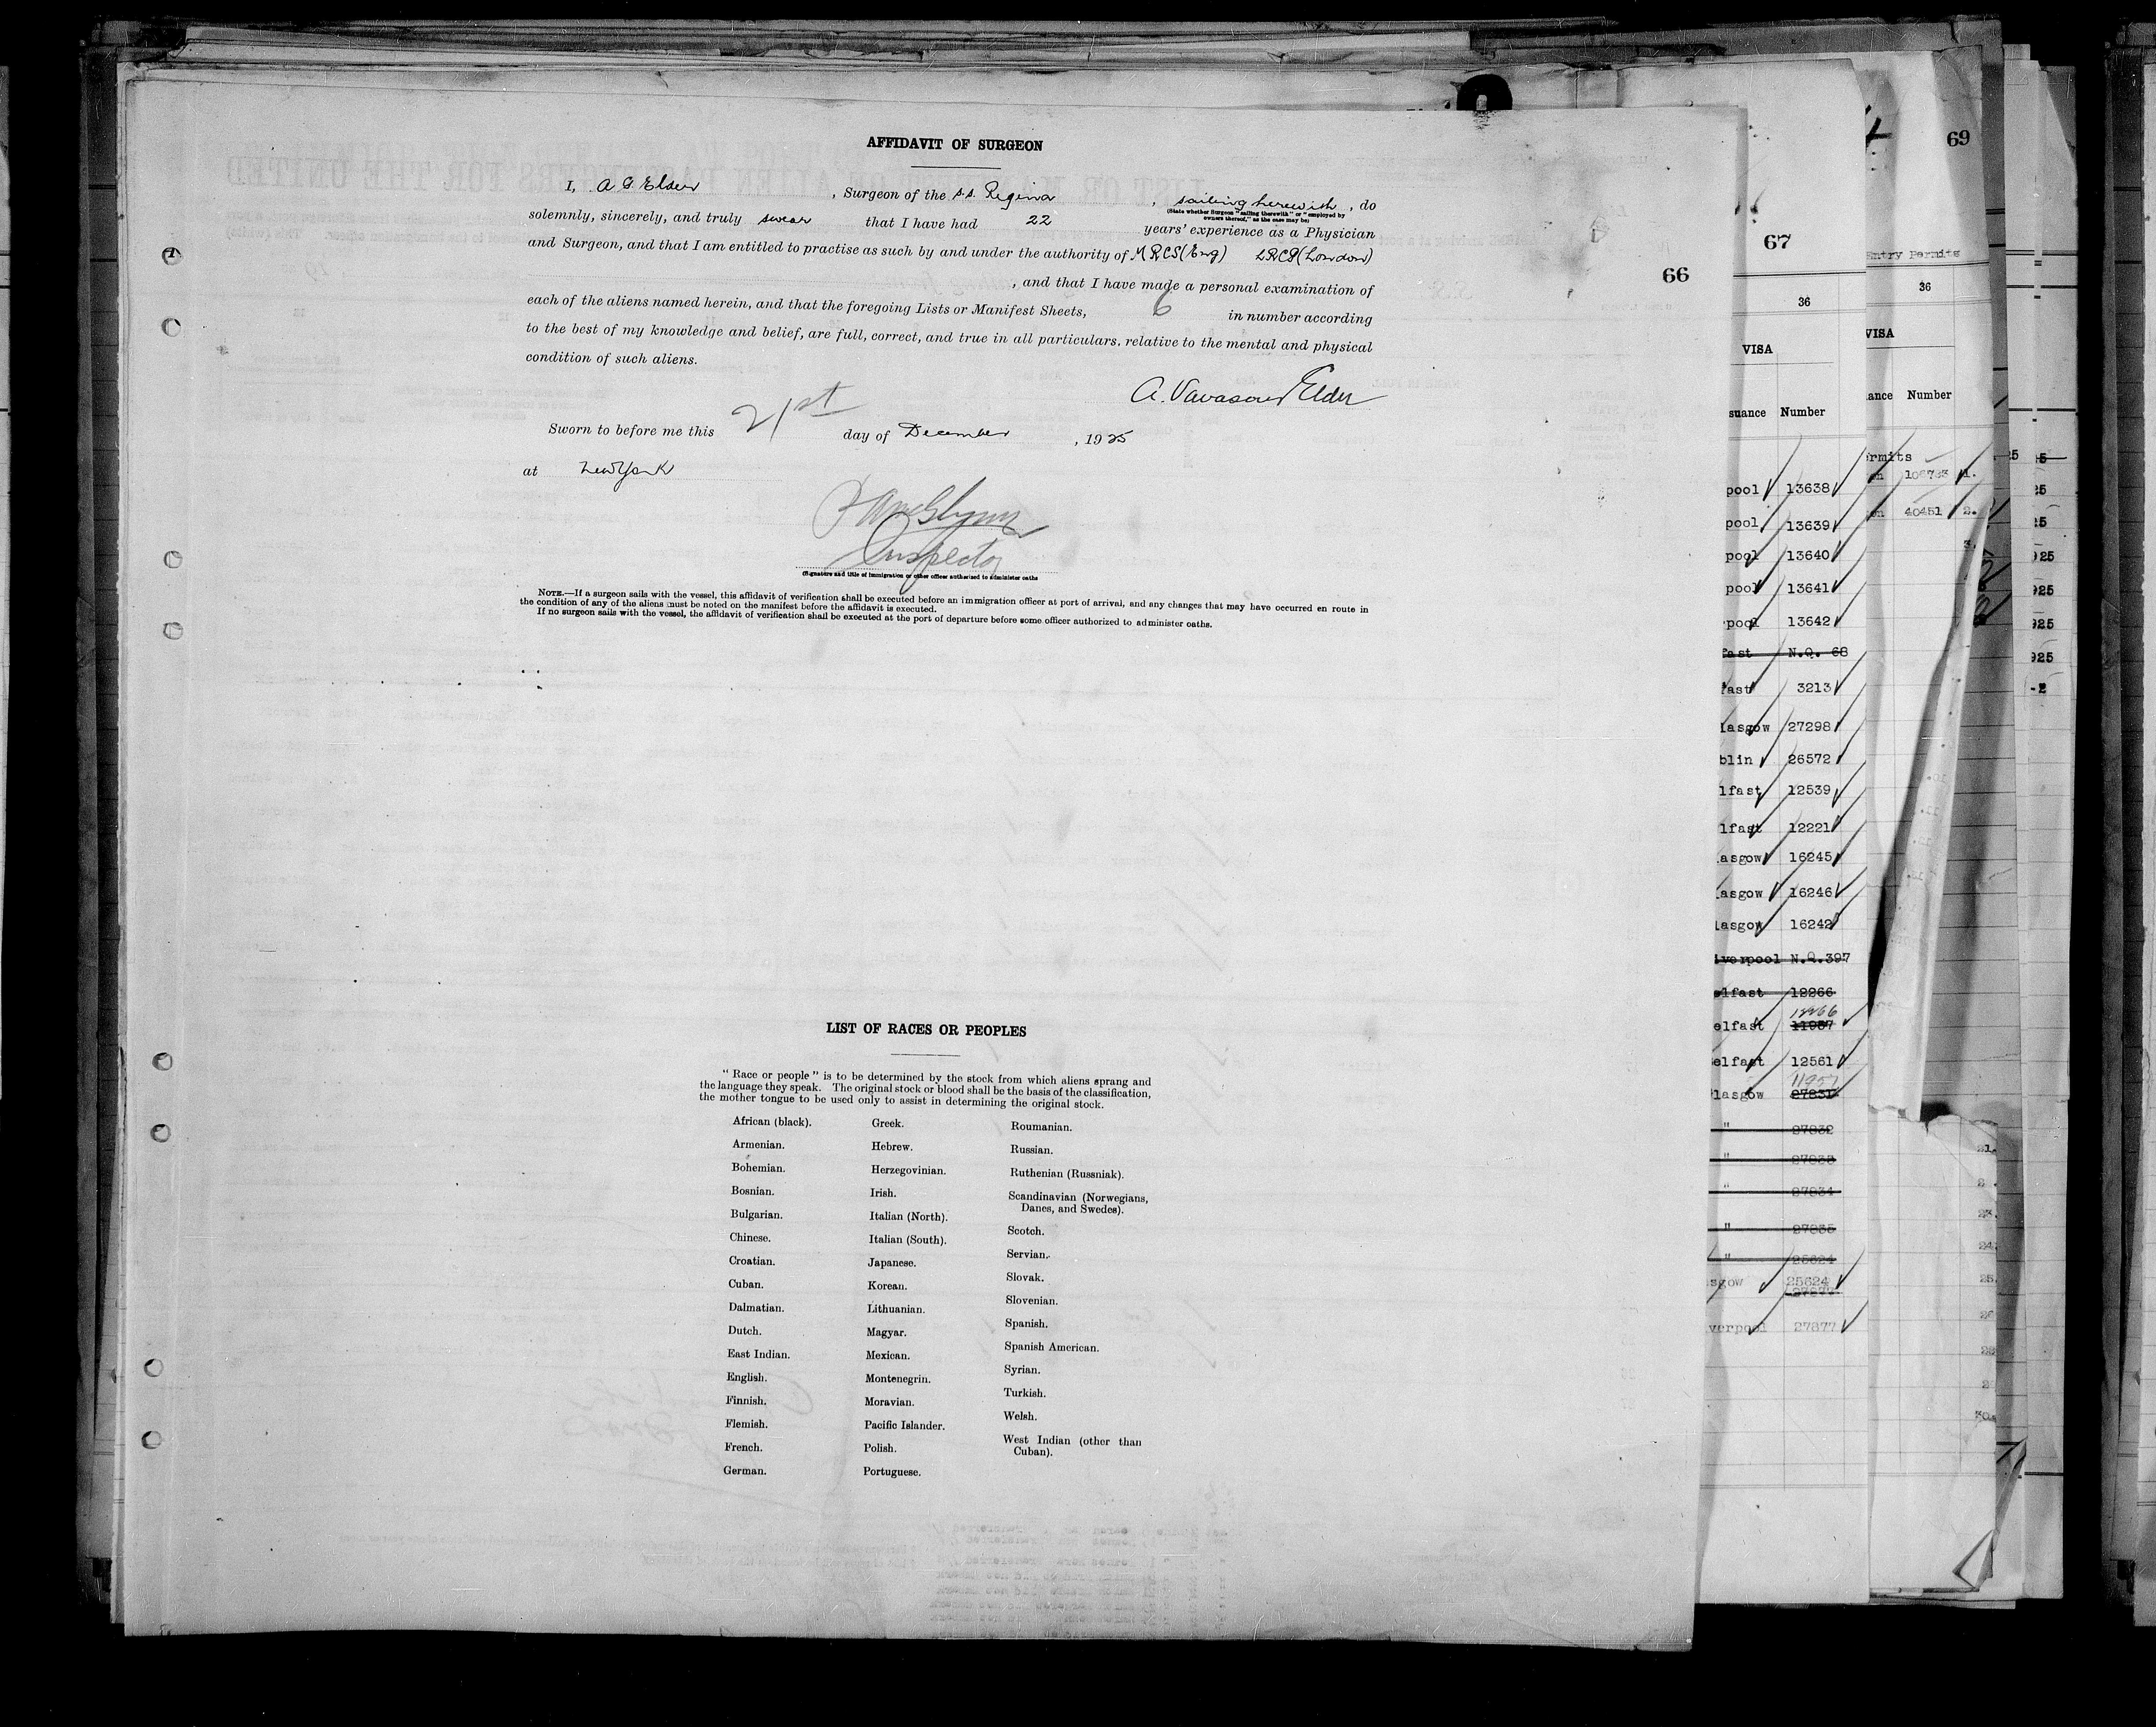 AFFIDAVIT OF SURGEON
I, A. Elder, Surgeon of the s.s. Regina, sailing herewith, do
(State whether Surgeon "sailing therewith" or "employed by
owners thereof," as the case may be)
solemnly, sincerely, and truly swear that I have had 22 years' experience as a Physician
and Surgeon, and that I am entitled to practise as such by and under the authority of MRCS(Eng) LRCP(London)
, and that I have made a personal examination of
each of the aliens named herein, and that the foregoing Lists or Manifest Sheets, 6 in number according
to the best of my knowledge and belief, are full, correct, and true in all particulars, relative to the mental and physical
condition of such aliens.
A. Vavasour Elder
Sworn to before me this 21st day of December, 1925
at New York
Inspector
(Signature and title of immigration or other officer authorized to administer oaths
NOTE.—If a surgeon sails with the vessel, this affidavit of verification shall be executed before an immigration officer at port of arrival, and any changes that may have occurred en route in
the condition of any of the aliens must be noted on the manifest before the affidavit is executed.
If no surgeon sails with the vessel, the affidavit of verification shall be executed at the port of departure before some officer authorized to administer oaths.
LIST OF RACES OR PEOPLES
" Race or people " is to be determined by the stock from which aliens sprang and
the language they speak. The original stock or blood shall be the basis of the classification,
the mother tongue to be used only to assist in determining the original stock.
African (black).
Armenian.
Bohemian.
Bosnian.
Bulgarian.
Chinese.
Croatian.
Cuban.
Dalmatian.
Dutch.
East Indian.
English.
Finnish.
Flemish.
French.
German.
Greek.
Hebrew.
Herzegovinian.
Irish.
Italian (North).
Italian (South).
Japanese.
Korean.
Lithuanian.
Magyar.
Mexican.
Montenegrin.
Moravian.
Pacific Islander.
Polish.
Portuguese.
Roumanian.
Russian.
Ruthenian (Russniak).
Scandinavian (Norwegians,
Danes, and Swedes).
Scotch.
Servian.
Slovak.
Slovenian.
Spanish.
Spanish American.
Syrian.
Turkish.
Welsh.
West Indian (other than
Cuban).
66
67
36
VISA
suance Number
pool 13638
pool 13639
pool 13640
pool 13641
pool 13642
fast N.Q. 68
fast 3213
lasgow 27298
blin 26572
lfast 12539
lfast 12221
asgow 16245
asgow 16246
lasgow 16242
iverpool N.Q.397
elfast 12266
12266
elfast 11957
elfast 12561
11957
lasgow 27831
" 27832
" 27833
" 27834
" 27835
" 25624
sgow 25624
verpool 27877
69
Entry Permits
36
VISA
ance Number
ermits
106783 1.
40451 2.
3.
21.
23.
24.
25.
30.
25
25
925
925
925